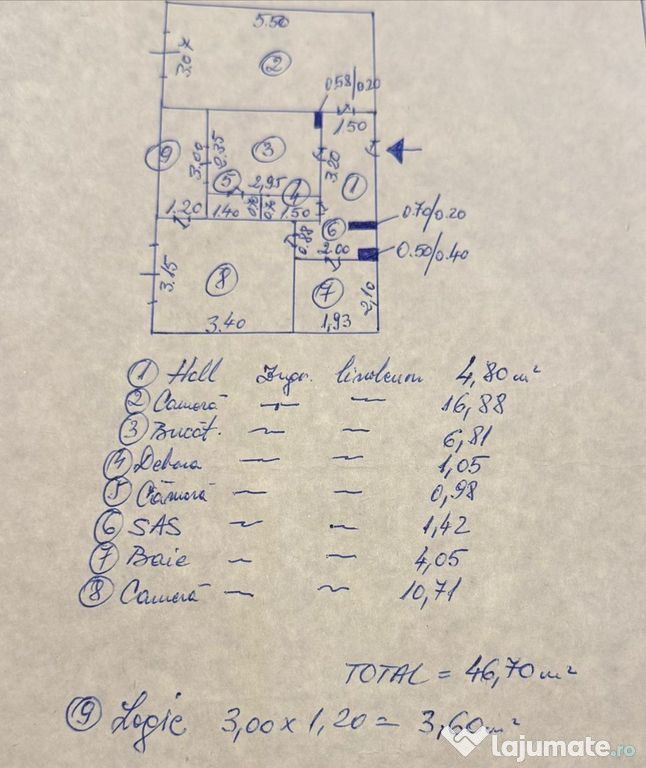 5.50
3.07
②
0.58/0.20
1.50
⑨
3.00
2.35
③
3.20
①
⑤
2,95
④
1.20
1.40
0.70
0.70
1.50
⑥
0.70/0.20
0.88
2.00
0.50/0.40
3.15
⑧
⑦
2,10
3.40
1,93
① Hall Zugr. linoleum 4,80 m²
② Cameră ~ ~ 16,88
③ Bucăt. ~ ~ 6,81
④ Debara ~ ~ 1,05
⑤ Cămară ~ ~ 0,98
⑥ SAS ~ ~ 1,42
⑦ Baie ~ ~ 4,05
⑧ Cameră ~ ~ 10,71
TOTAL = 46,70 m²
⑨ Logie 3,00 x 1,20 = 3,60 m²
lajumate.ro